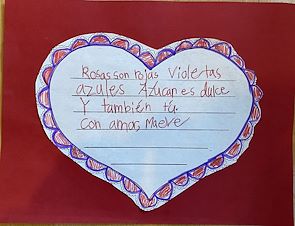 Rosas son rojas Violetas
azules Azucar es dulce
Y también tú
con amor, Maeve